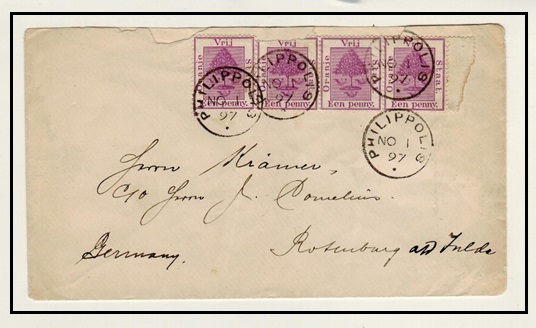 Vrij Vrij Vrij
Oranje Staat. Oranje Staat.
Een penny. Een penny. Een penny. Een penny.
PHILIPPOLIS NO 97
PHILIPPOLIS NO 1 97
PHILIPPOLIS NO 97
PHILIPPOLIS NO 1 97
Herrn Krämer,
C/o Herrn J. Cornelius.
Rotenburg a/d Fulda
Germany.